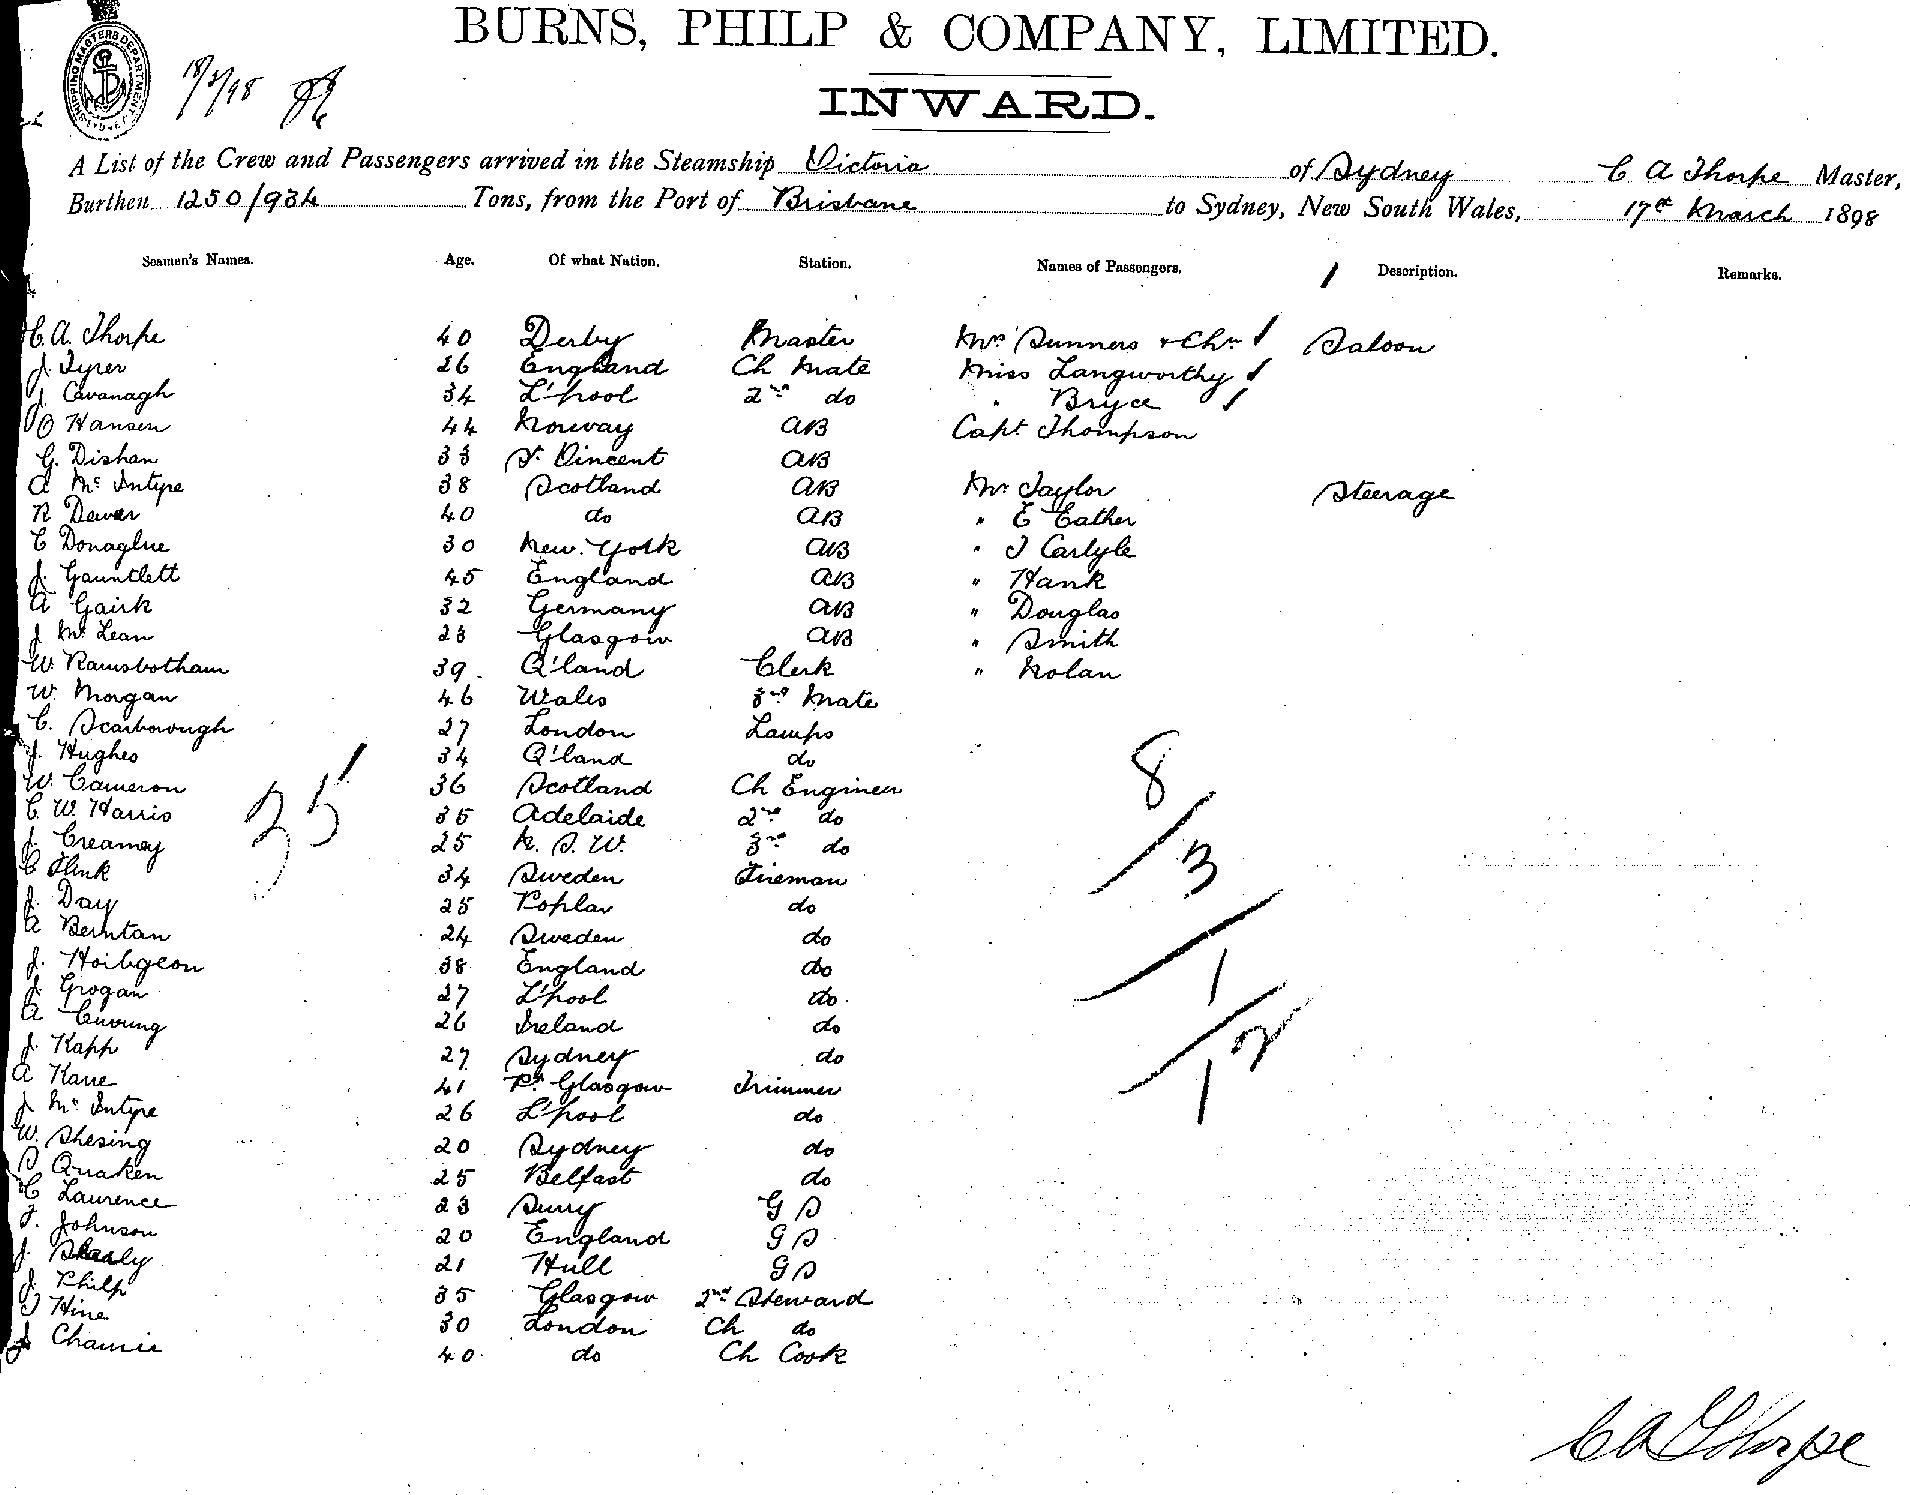 BURNS, PHILP & COMPANY, LIMITED.
SHIPPING MASTERS DEPARTMENT SYDNEY
18/3/98
INWARD.
A List of the Crew and Passengers arrived in the Steamship Victoria of Sydney C A Thorpe Master,
Burthen 1250/934 Tons, from the Port of Brisbane to Sydney, New South Wales, 17th March 1898
Seamen's Names. Age. Of what Nation. Station. Names of Passengers. Description. Remarks.
C. A. Thorpe 40 Derby Master Mrs Sunners + Chn Saloon
J. Tyrer 26 England Ch Mate Miss Langworthy
J Cavanagh 34 L'pool 2nd do " Bryce
O Hansen 44 Norway AB Capt Thompson
G. Dishan 33 St Vincent AB
A Mc Intyre 38 Scotland AB Mr Taylor Steerage
R Dewar 40 do AB " E Eather
C Donaghue 30 New York AB " J Carlyle
J. Gauntlett 45 England AB " Hank
A Gairk 32 Germany AB " Douglas
J McLean 23 Glasgow AB " Smith
W. Ramsbotham 39. Q'land Clerk " Nolan
W. Morgan 46 Wales 3rd Mate
C. Scarborough 27 London Lamps
J. Hughes 34 Q'land do
W. Cameron 36 Scotland Ch Engineer
C. W. Harris 35 Adelaide 2nd do
J. Creamey 25 N. S. W. 3rd do
C Flink 34 Sweden Fireman
J. Day 25 Poplar do
A Berntan 24 Sweden do
J. Hoibgeon 38 England do
J. Grogan 27 L'pool do.
A 26 Ireland do
J. Kapp 27 Sydney do
A Kane 41 Pt Glasgow Trimmer
J Mc Intyre 26 L'pool do
W. Shesing 20 Sydney do
Quaken 25 Belfast do
C Laurence 23 Surry G S
J. Johnson 20 England G S
J. 21 Hull G S
J. Philp 35 Glasgow 2nd Steward
J Hine 30 London Ch do
J Chamie 40 do Ch Cook
35
8
3
1
12
C A Thorpe